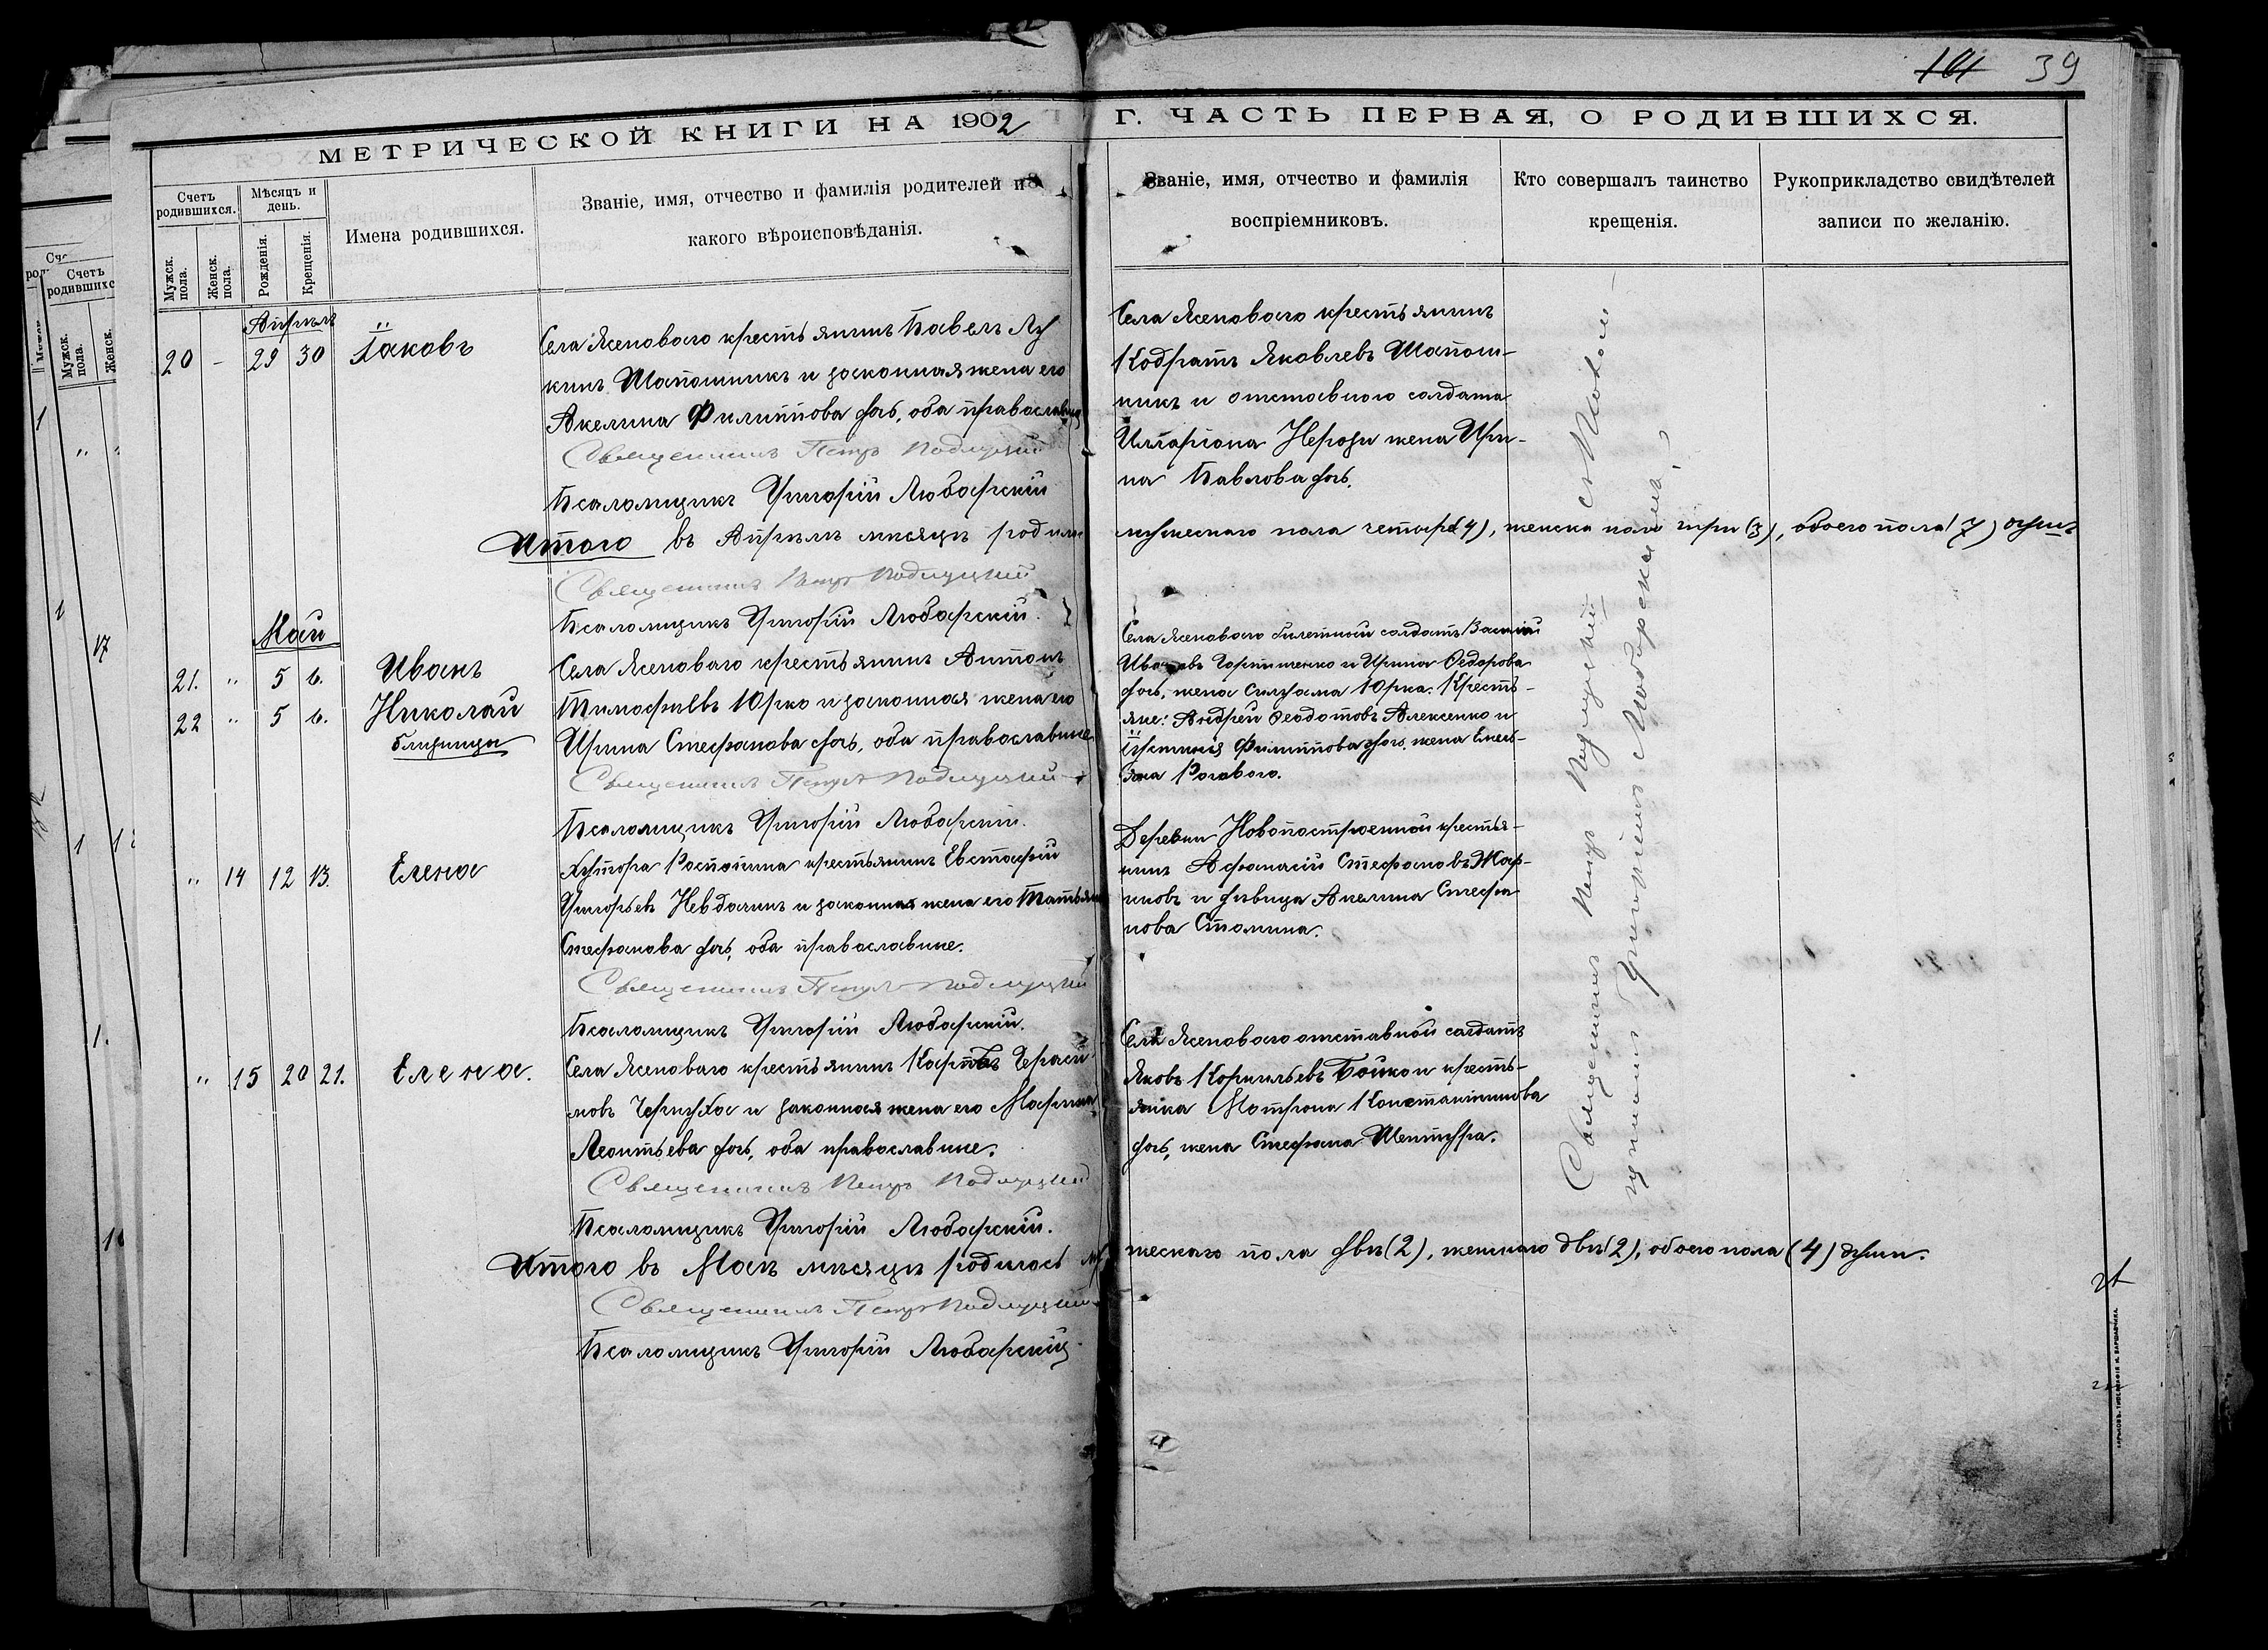 101 39
МЕТРИЧЕСКОЙ КНИГИ НА 1902 Г. ЧАСТЬ ПЕРВАЯ, О РОДИВШИХСЯ.
Счетъ родившихся.
Мужск. пола.
Женск. пола.
Мѣсяцъ и день.
Рожденія.
Крещенія.
Имена родившихся.
Званіе, имя, отчество и фамилія родителей и
какого вѣроисповѣданія.
Званіе, имя, отчество и фамилія
воспріемниковъ.
Кто совершалъ таинство
крещенія.
Рукоприкладство свидѣтелей
записи по желанію.
Апрѣль
20 - 29 30 Іаковъ
Села Ясеноваго крестьянинъ Павелъ Лу
кинъ Шапошникъ и законная жена его
Акелина Филиппова дочь, оба православные
Священникъ Петръ Подлуцкий
Псаломщикъ Григорій Любарскій
Села Ясеноваго крестьянинъ
Кодратъ Яковлевъ Шапош-
никъ и отставного солдата
Илларіона жена Ири-
на Павлова дочь.
Итого въ Апрѣлѣ мѣсяцѣ родилось мужескаго пола четыре (4), женска пола три (3), обоего пола (7) душъ
Священникъ Петръ Подлуцкий
Псаломщикъ Григорій Любарскій.
Май
21. " 5 6. Иванъ
22 " 5 6. Николай
близнецы
Села Ясеноваго крестьянинъ Антонъ
Тимофѣевъ Юрко и законная жена его
Ирина Стефанова дочь, оба православные
Священникъ Петръ Подлуцкий
Псаломщикъ Григорій Любарскій.
Села Ясеноваго билетный солдатъ Василій
Ивановъ и Ирина Ѳедорова
дочь, жена Юрка. Кресть-
яне: Андрей Ѳеодотовъ Алексенко и
Филиппова дочь, жена Емель-
яна Рогового.
" 14 12 13. Елена
Хутора крестьянинъ Евстафій
Григорьевъ и законная жена его Татьяна
Стефанова дочь, оба православные.
Священникъ Петръ Подлуцкий
Псаломщикъ Григорій Любарскій.
Деревни Новопостроенной крестья-
нинъ Афанасій Стефановъ Жар-
иковъ и дѣвица Акелина Стефа
нова
" 15 20 21. Елена.
Села Ясеноваго крестьянинъ Карпъ Гераси
мовъ Чернуха и законная жена его Марина
Леонтьева дочь, оба православные.
Священникъ Петръ Подлуцкий
Псаломщикъ Григорій Любарскій.
Села Ясеноваго отставной солдатъ
Яковъ Корнильевъ Бойко и кресть-
янка Матрона Константинова
дочь, жена Стефана
Итого въ Маѣ мѣсяцѣ родилось мужескаго пола двѣ (2), женскаго двѣ (2), обоего пола (4) души.
Священникъ Петръ Подлуцкий
Псаломщикъ Григорій Любарскій
Священникъ Петръ Подлуцкий съ Псалом-
щикомъ Григоріемъ Любарскимъ.